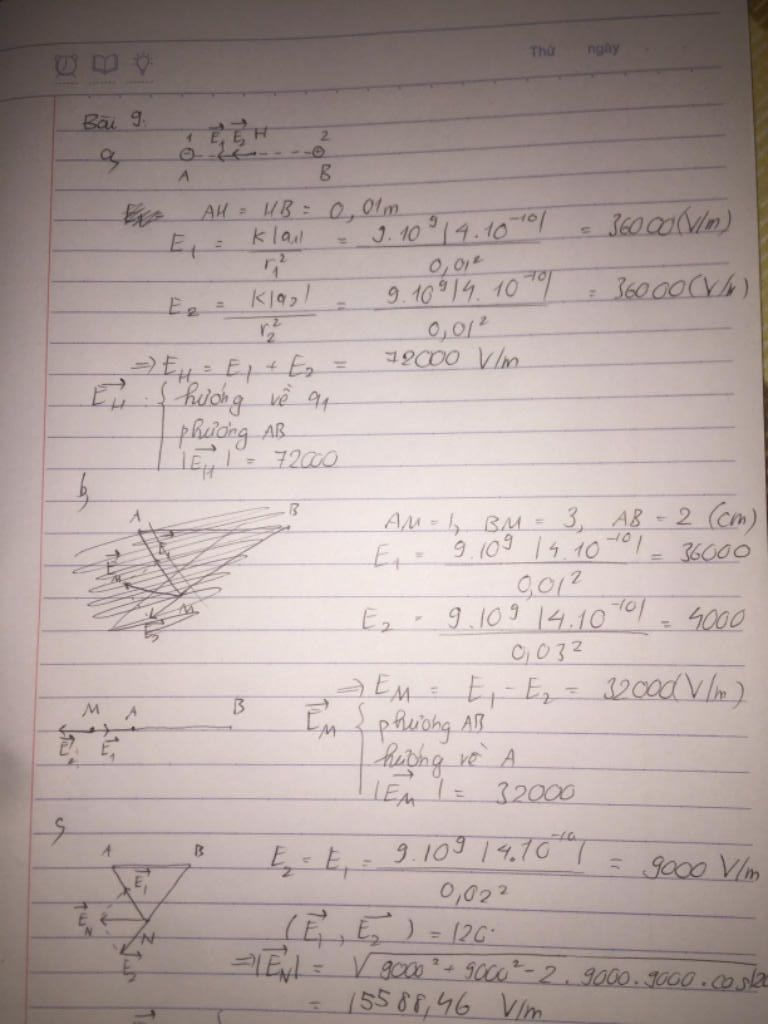 Thứ ngày
Bài 9.
a, 1 E₁ E₂ H 2
⊖ ⊕
A B
AH = HB = 0,01m
E₁ = k|q₁| / r₁² = 9.10⁹|4.10⁻¹⁰| / 0,01² = 36000(V/m)
E₂ = k|q₂| / r₂² = 9.10⁹|4.10⁻¹⁰| / 0,01² = 36000(V/m)
=> E_H = E₁ + E₂ = 72000 V/m
E_H : { hướng về q₁
phương AB
|E_H| = 72000
b, A B
E₁ E_M M E₂
AM = 1, BM = 3, AB = 2 (cm)
E₁ = 9.10⁹ |4.10⁻¹⁰| / 0,01² = 36000
E₂ = 9.10⁹ |4.10⁻¹⁰| / 0,03² = 4000
=> E_M = E₁ - E₂ = 32000(V/m)
M A B
E₂ E₁
E_M { phương AB
hướng về A
|E_M| = 32000
c,
A B
E₁ E_N N E₂
E₂ = E₁ = 9.10⁹ |4.10⁻¹⁰| / 0,02² = 9000 V/m
(E₁, E₂) = 120°
=> |E_N| = √9000² + 9000² - 2.9000.9000.cos120
= 15588,46 V/m